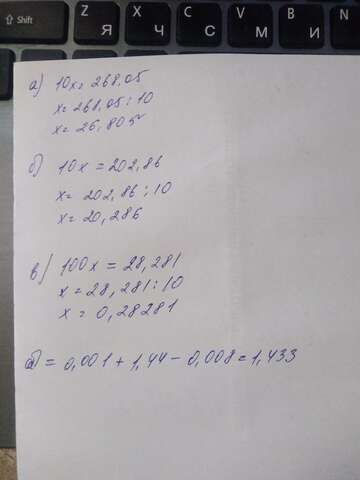 Shift
Z
Я
X
Ч
C
С
V
М
B
И
N
а) 10x = 268.05
x = 268.05 : 10
x = 26,805
б) 10x = 202,86
x = 202,86 : 10
x = 20,286
в) 100x = 28,281
x = 28,281 : 10
x = 0,28281
= 0,001 + 1,44 - 0,008 = 1,433